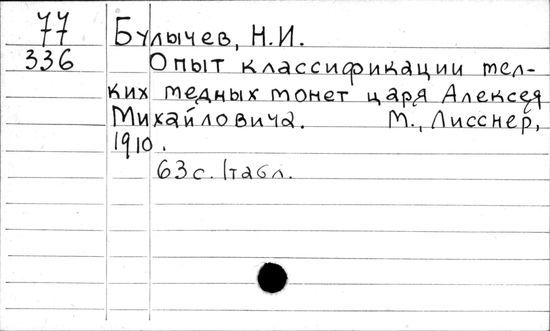 77 Булычев, Н.И.
336 Опыт классификации мел-
ких медных монет царя Алексея
Михайловича. М., Лисснер,
1910.
63 с. 1табл.